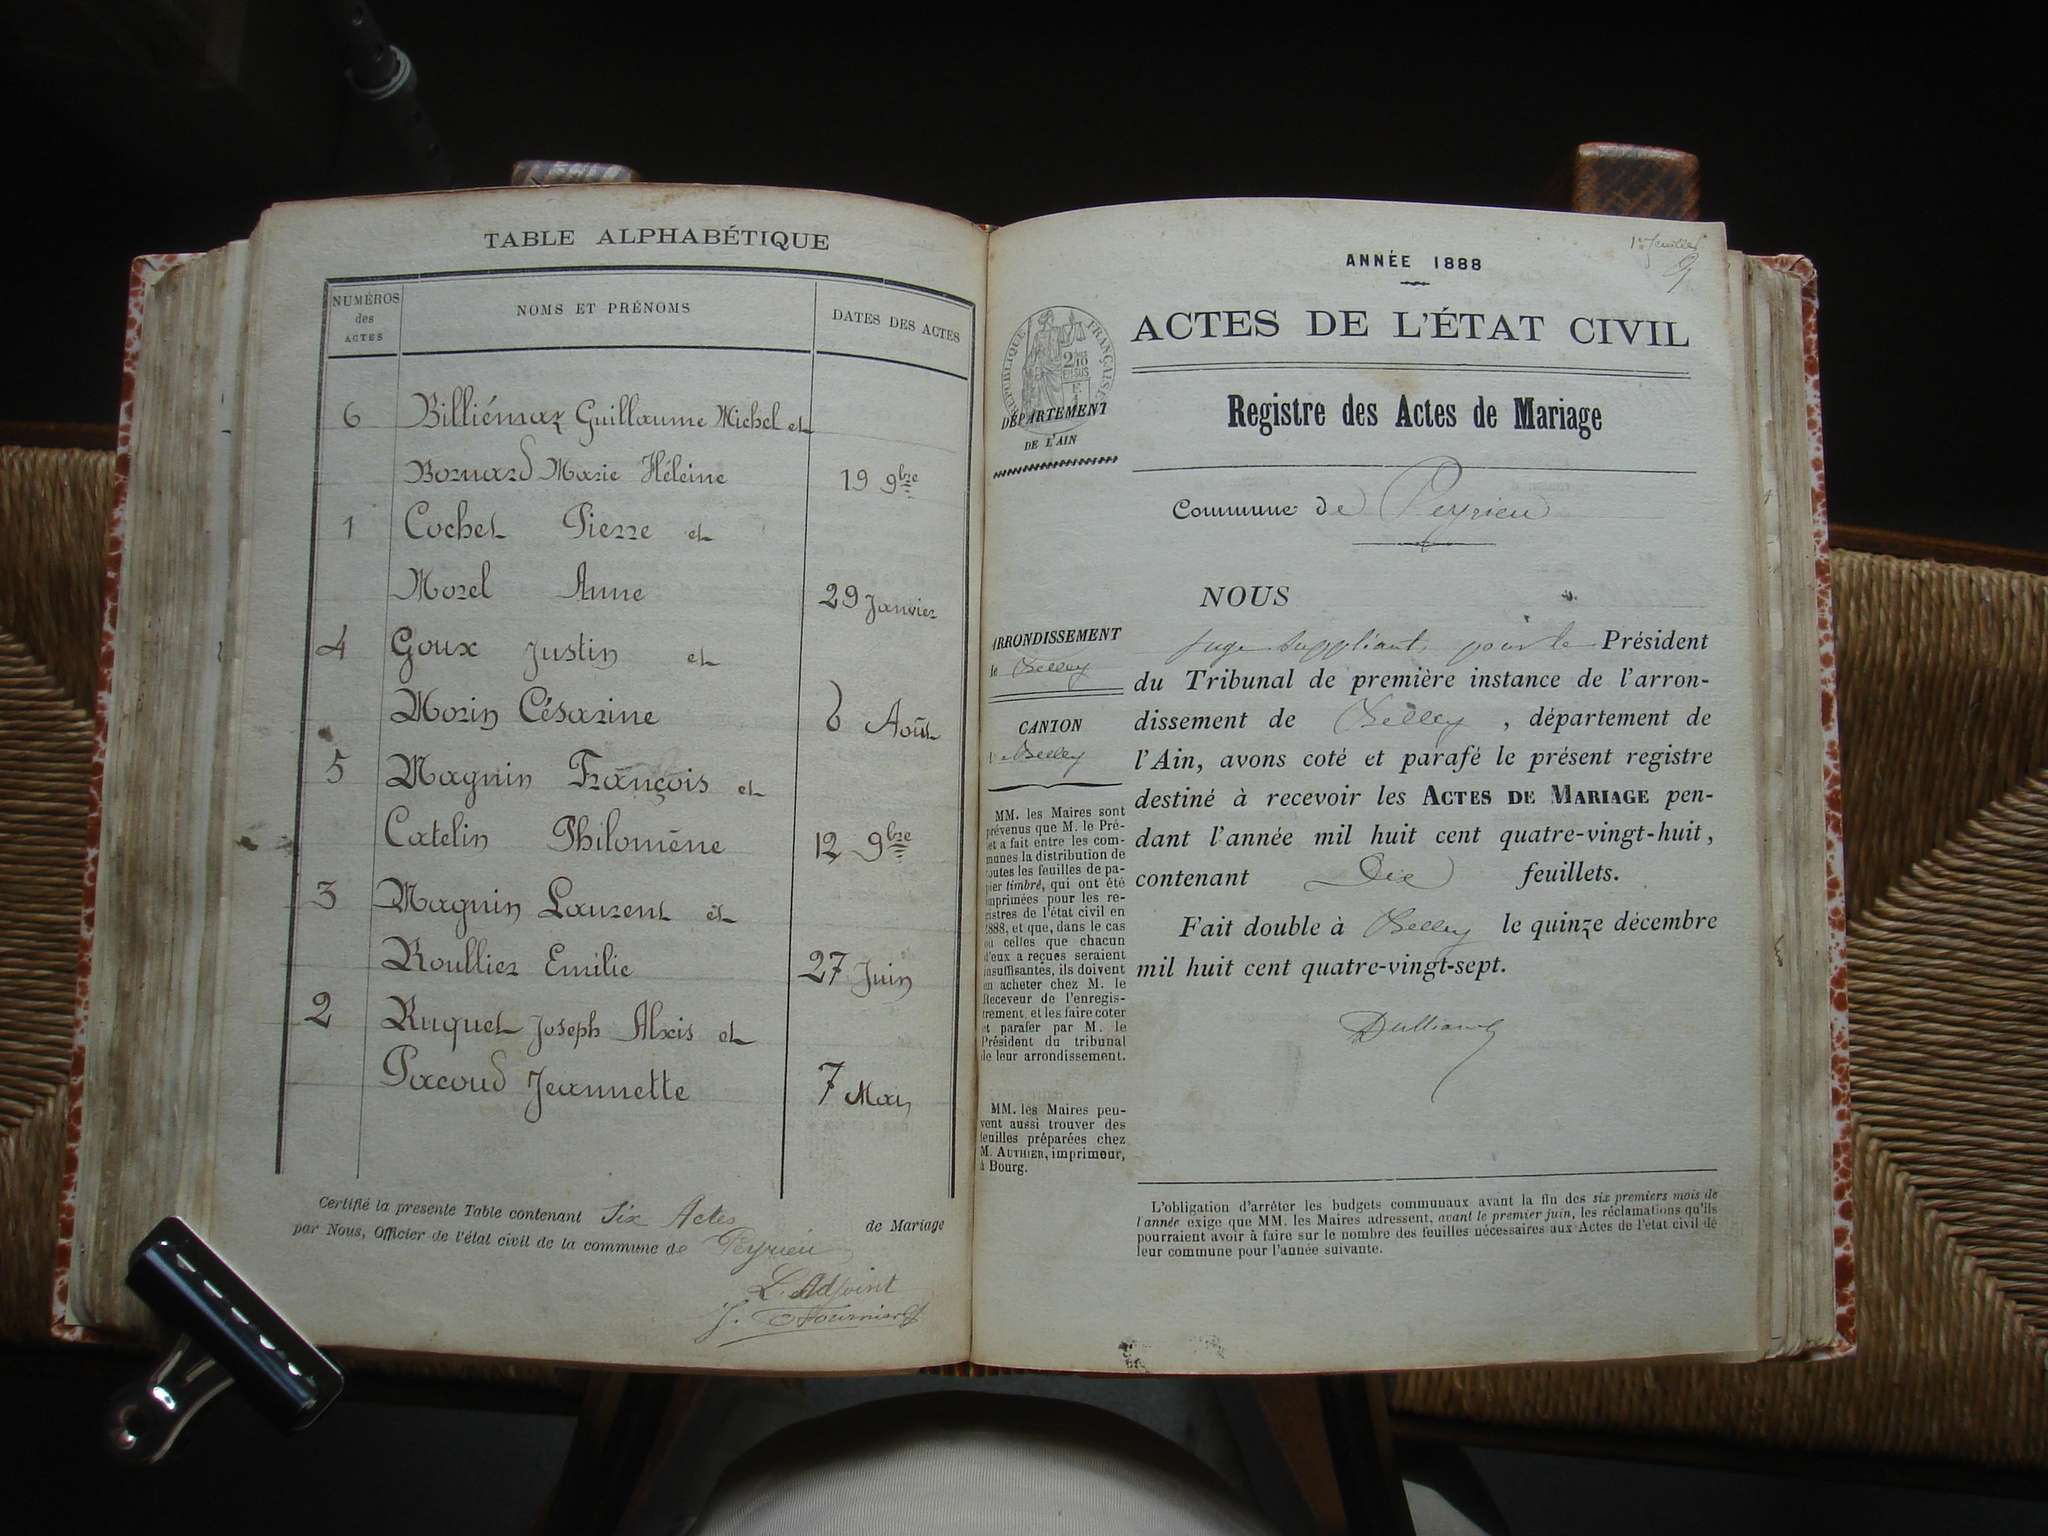 TABLE ALPHABÉTIQUE
NUMÉROS des ACTES
NOMS ET PRÉNOMS
DATES DES ACTES
6 Billiémaz Guillaume Michel et
Bornard Marie Héleine 19 9bre
1 Cochet Pierre et
Morel Anne 29 Janvier
4 Goux Justin et
Morin Césarine 6 Août
5 Magnin François et
Catelin Philomène 12 9bre
3 Magnin Laurent et
Roullier Emilie 27 Juin
2 Ruquet Joseph Alxis et
Pacoud Jeannette 7 Mai
Certifié la présente Table contenant Six Actes de Mariage
par Nous, Officier de l'état civil de la commune de Peyrieu
L'Adjoint
J. Fournier
1er feuillet
ANNÉE 1888
ACTES DE L'ÉTAT CIVIL
RÉPUBLIQUE FRANÇAISE
2/10 EN SUS
DÉPARTEMENT
DE L'AIN
Registre des Actes de Mariage
Commune de Peyrieu
NOUS
ARRONDISSEMENT
de Belley
CANTON
de Belley
juge suppléant pour le Président
du Tribunal de première instance de l'arron-
dissement de Belley, département de
l'Ain, avons coté et parafé le présent registre
destiné à recevoir les ACTES DE MARIAGE pen-
dant l'année mil huit cent quatre-vingt-huit,
contenant Dix feuillets.
Fait double à Belley le quinze décembre
mil huit cent quatre-vingt-sept.
MM. les Maires sont
prévenus que M. le Pré-
fet a fait entre les com-
munes la distribution de
toutes les feuilles de pa-
pier timbré, qui ont été
imprimées pour les re-
gistres de l'état civil en
1888, et que, dans le cas
où celles que chacun
d'eux a reçues seraient
insuffisantes, ils doivent
en acheter chez M. le
Receveur de l'enregis-
trement, et les faire coter
et parafer par M. le
Président du tribunal
de leur arrondissement.
MM. les Maires peu-
vent aussi trouver des
feuilles préparées chez
M. AUTHIER, imprimeur,
à Bourg.
L'obligation d'arrêter les budgets communaux avant la fin des six premiers mois de
l'année exige que MM. les Maires adressent, avant le premier juin, les réclamations qu'ils
pourraient avoir à faire sur le nombre des feuilles nécessaires aux Actes de l'état civil de
leur commune pour l'année suivante.